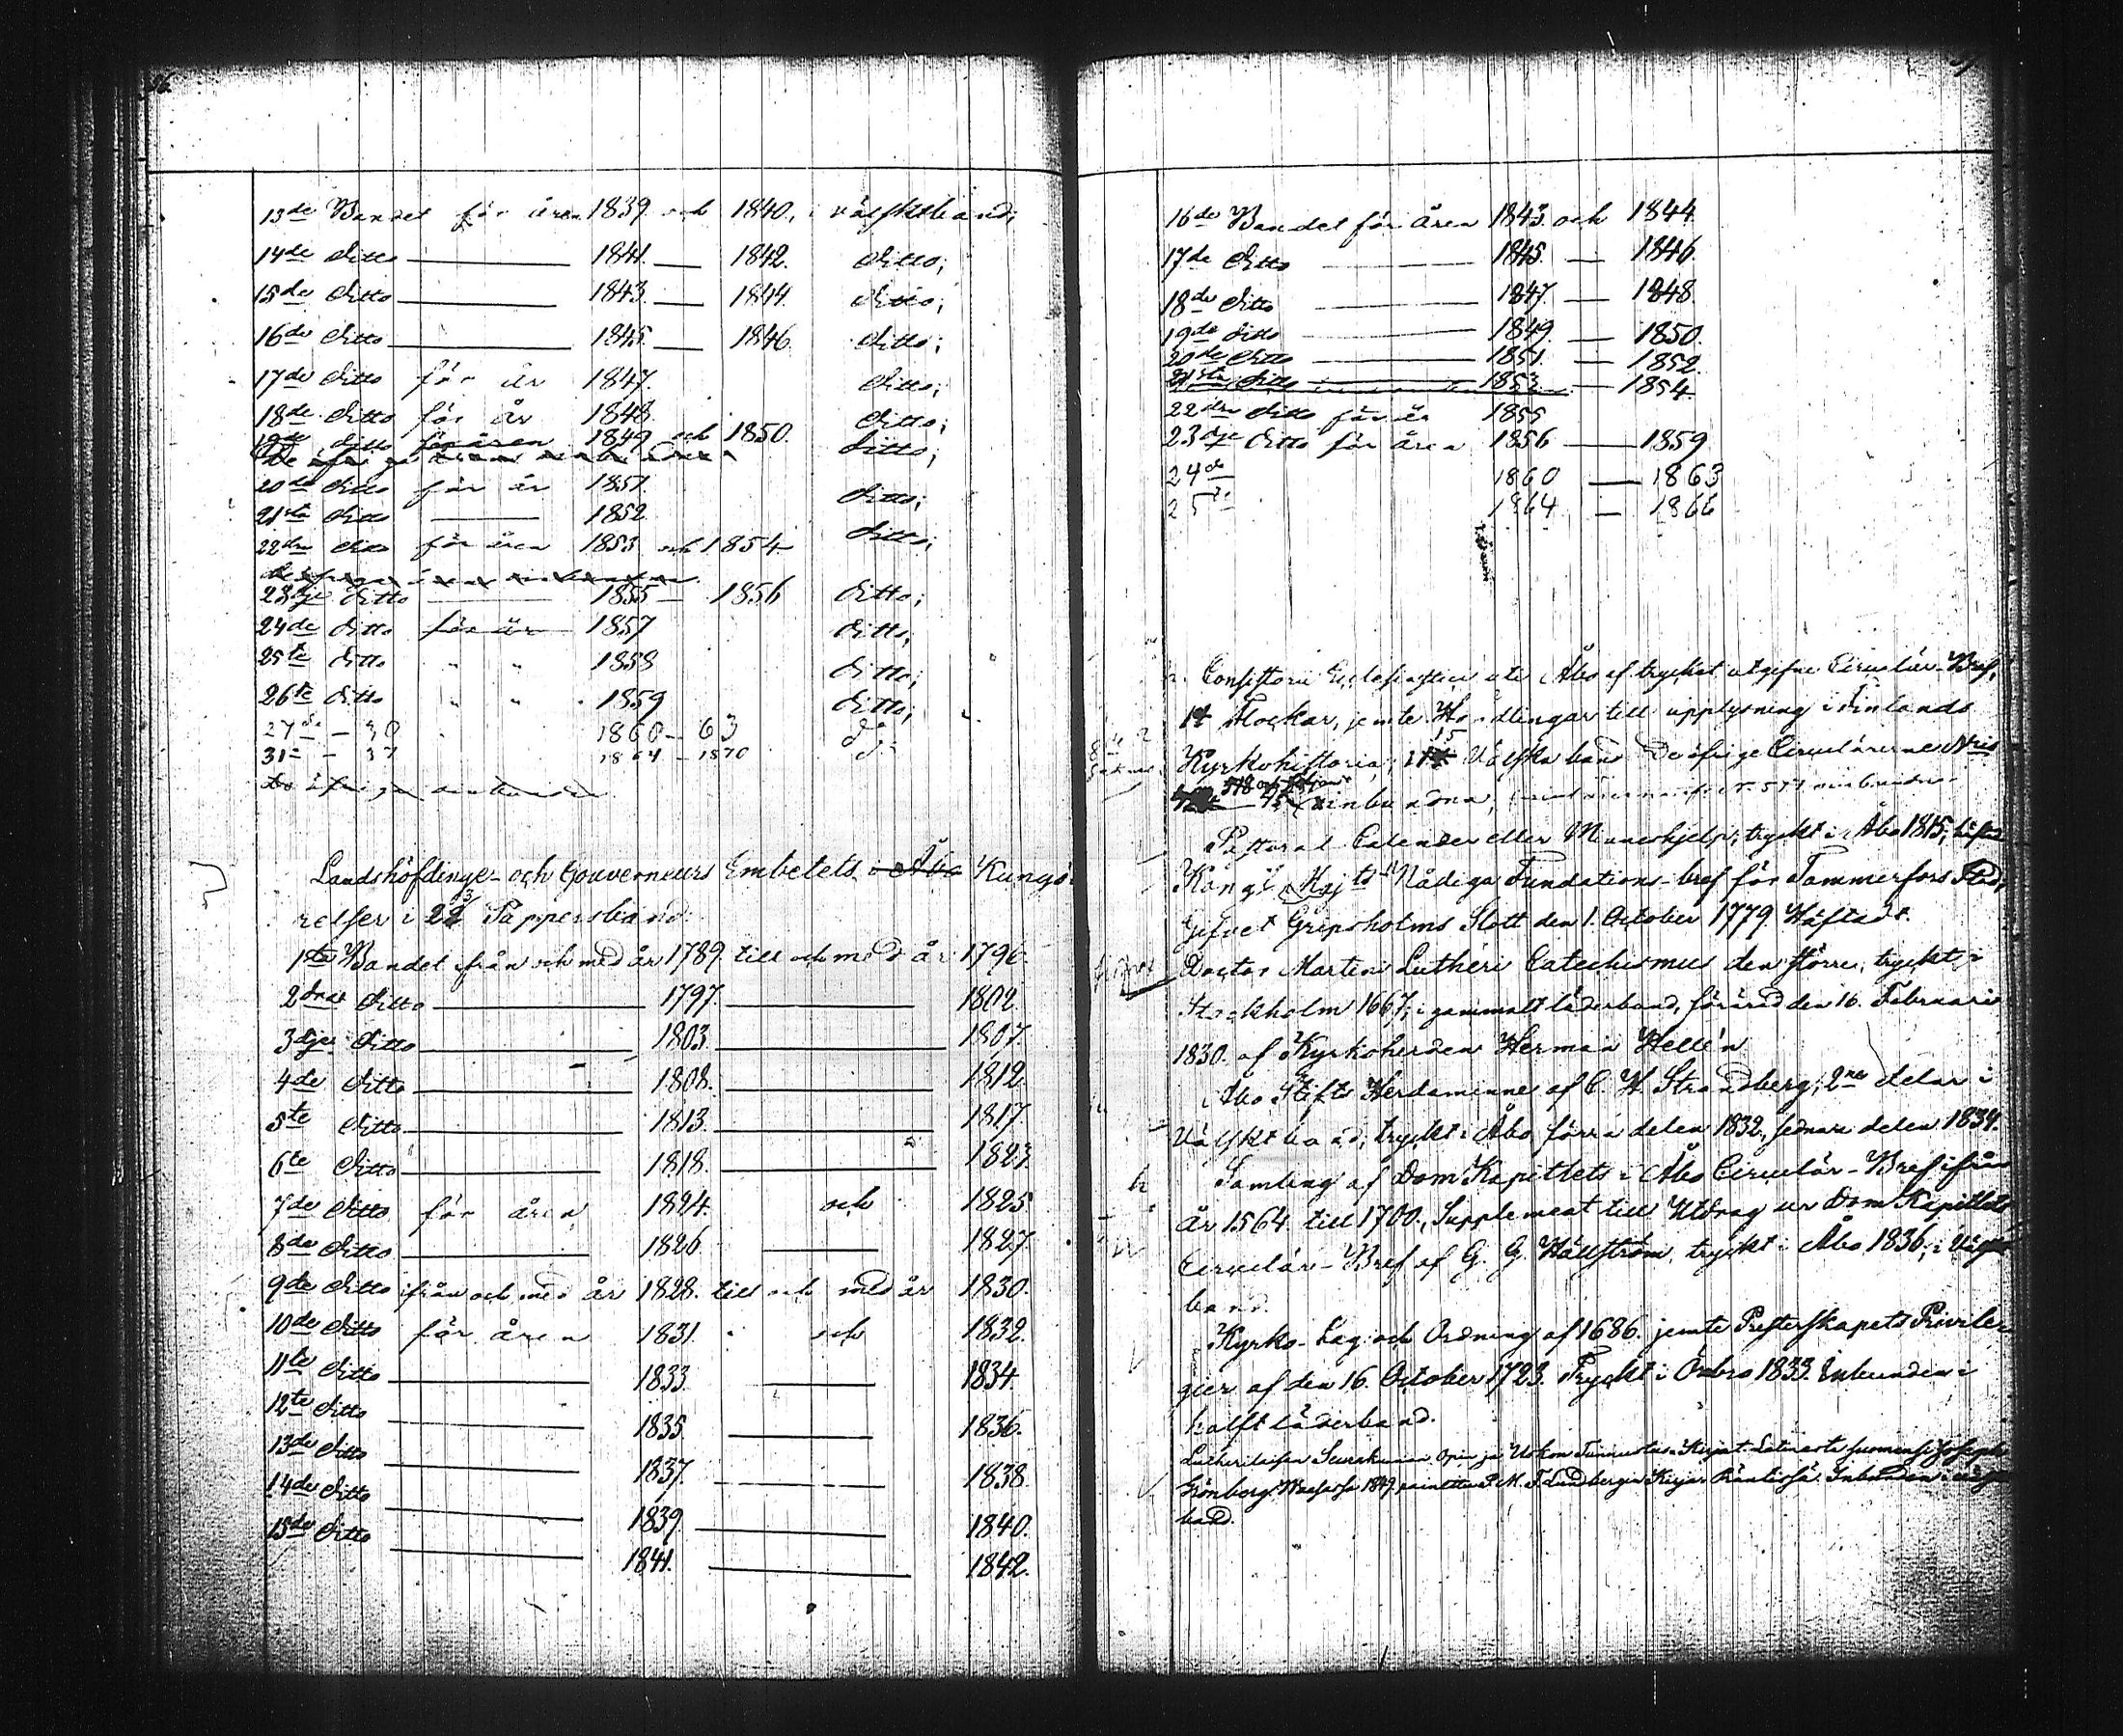 13de Bandet för åren 1839 och 1840, i välsktband;
14de ditto 1841. 1842. ditto;
15de ditto 1843. 1844. ditto;
16de ditto 1845. 1846. ditto;
17de ditto för år 1847. ditto;
18de ditto för år 1848. ditto;
19de ditto för åren 1849 och 1850. ditto;
20de ditto för år 1851. ditto;
21sta ditto 1852.
22dra ditto för åren 1853 och 1854 ditto;
23dje ditto 1855 - 1856 ditto;
24de ditto för år 1857 ditto;
25te ditto " " 1858 ditto;
26te ditto " " 1859 ditto;
27de - 30 1860 - 63 do
31 - 37 1864 - 1870 d
De öfriga oinbundna
Landshöfdinge- och Gouverneurs Embetets i Åbo Kungö-
relser i 22 Pappersband:
1sta Bandet från och med år 1789 till och med år 1796.
2dra ditto 1797. 1802.
3dje ditto 1803. 1807.
4de ditto 1808. 1812.
5te ditto 1813. 1817.
6te ditto 1818. 1823.
7de ditto för åren 1824. och 1825.
8de ditto 1826. 1827.
9de ditto ifrån och med år 1828. till och med år 1830.
10de ditto för åren 1831. och 1832.
11te ditto 1833. 1834.
12te ditto 1835. 1836.
13de ditto 1837. 1838.
14de ditto 1839. 1840.
15de ditto 1841. 1842.
16de Bandet för åren 1843. och 1844.
17de ditto 1845. 1846.
18de ditto 1847. 1848.
19de ditto 1849. 1850.
20de ditto 1851. 1852.
21sta ditto 1853. 1854.
22dra ditto för år 1855
23dje ditto för åren 1856 1859
24de 1860 1863
25 1864 1866
Consistorii Ecclesiastici uti Åbo af trycket utgifne Circulär-Bref,
14 Flockar, jemte Handlingar till upplysning i Finlands
Kyrkohistoria; i 15 Välska band De öfrige Circulärerne Nris
oinbundna,
Pastoral Calender eller Minneshjelp; tryckt i Åbo 1815; häftad
Kongl. Majts Nådiga Fundations-bref för Tammerfors Stad,
Gifvet Gripsholms Slott den 1. October 1779. Häftadt.
Doctor Martini Lutheri Catechismus den större; tryckt i
Stockholm 1667; i gammalt läderband, förärad den 16. Februarii
1830. af Kyrkoherden Herman Hellén
Åbo Stifts Herdaminne af C. H. Strandberg; 2ne delar i
Välsktband; tryckt i Åbo, förra delen 1832, sednare delen 1834.
Samling af Dom Kapitlets i Åbo Circulär-Bref ifrån
år 1564 till 1700., Supplement till Utdrag ur Dom Kapitlets
Circulär-Bref af G. G. Hällström, tryckt i Åbo 1836; i Välskt
band.
Kyrko-Lag och Ordning af 1686. jemte Presterskapets Privile-
gier af den 16. October 1723. Tryckt i Örebro 1833. Inbunden i
halft läderband.
Lutherileisen Seurakunnan Opin ja Uskon Tunnustus-Kirjat Latinasta suomensi Joseph
Grönberg. Waasassa 1849 F. Lundbergin Kirja Inbunden i
band.